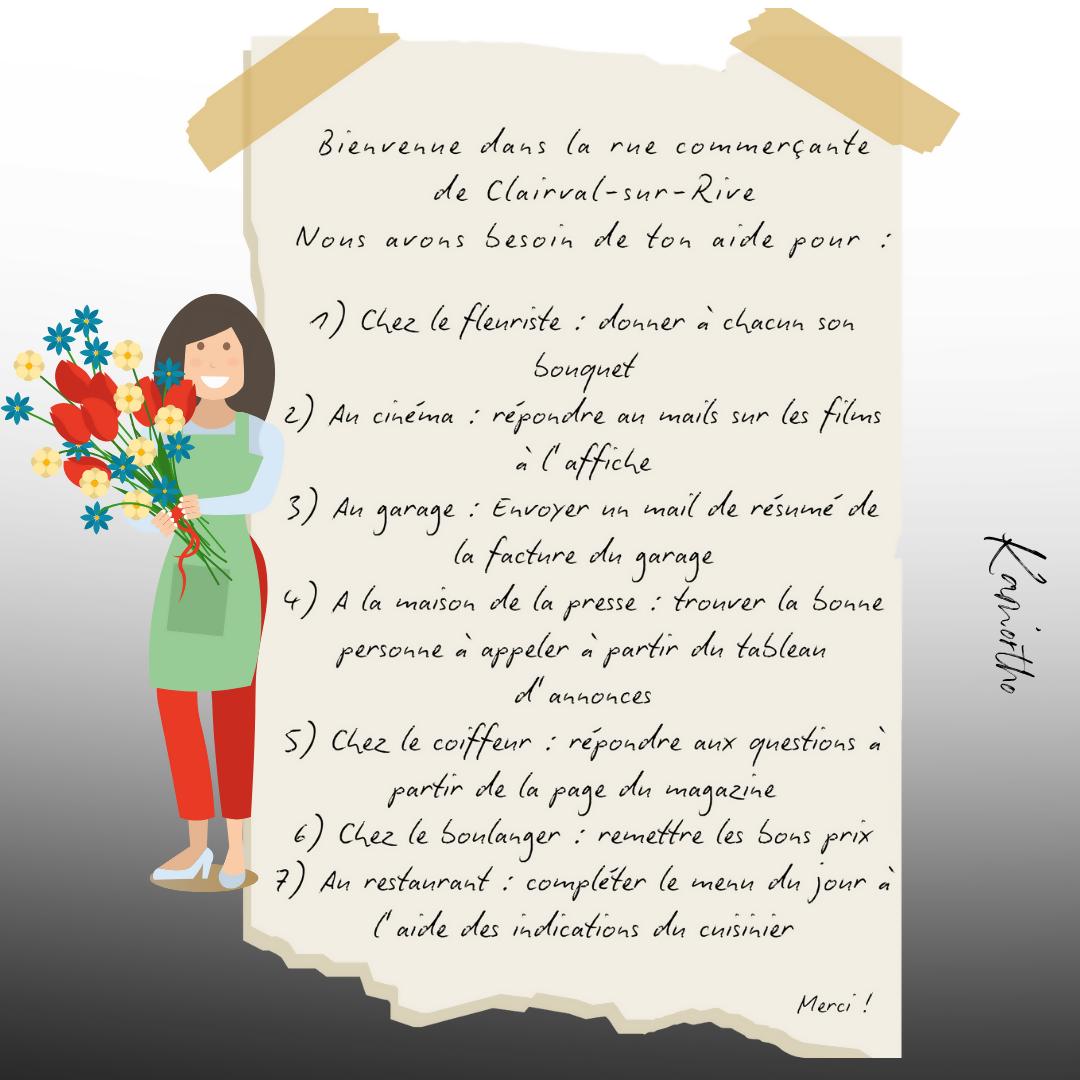 Bienvenue dans la rue commerçante
de Clairval-sur-Rive
Nous avons besoin de ton aide pour :
1) Chez le fleuriste : donner à chacun son
bouquet
2) Au cinéma : répondre au mails sur les films
à l'affiche
3) Au garage : Envoyer un mail de résumé de
la facture du garage
4) A la maison de la presse : trouver la bonne
personne à appeler à partir du tableau
d'annonces
5) Chez le coiffeur : répondre aux questions à
partir de la page du magazine
6) Chez le boulanger : remettre les bons prix
7) Au restaurant : compléter le menu du jour à
l'aide des indications du cuisinier
Merci !
Kamiortho